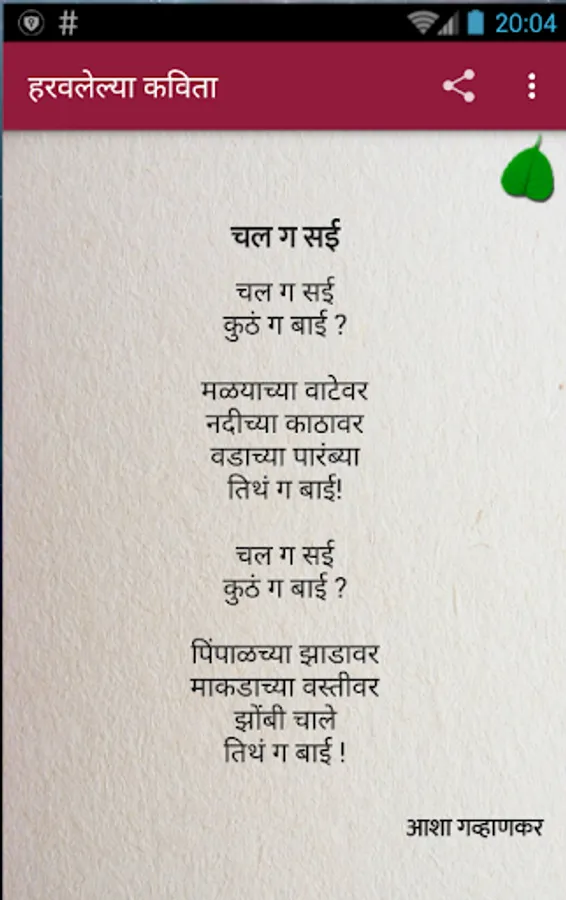 # 20:04
हरवलेल्या कविता
चल ग सई
चल ग सई
कुठं ग बाई ?
मळयाच्या वाटेवर
नदीच्या काठावर
वडाच्या पारंब्या
तिथं ग बाई!
चल ग सई
कुठं ग बाई ?
पिंपाळच्या झाडावर
माकडाच्या वस्तीवर
झोंबी चाले
तिथं ग बाई !
आशा गव्हाणकर